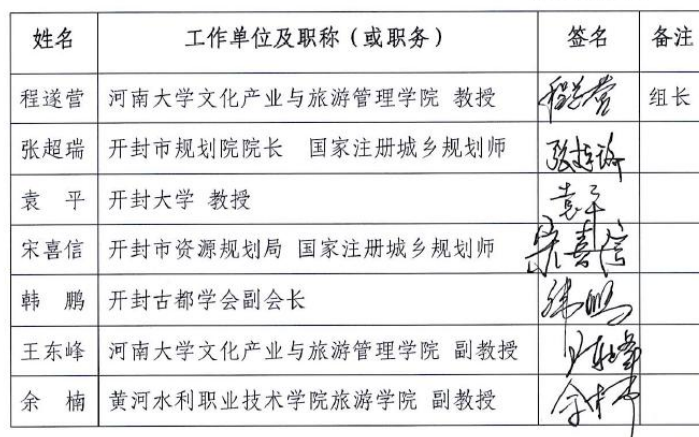 姓名 工作单位及职称（或职务） 签名 备注
程遂营 河南大学文化产业与旅游管理学院 教授 程遂营 组长
张超瑞 开封市规划院院长 国家注册城乡规划师 张超瑞
袁 平 开封大学 教授 袁平
宋喜信 开封市资源规划局 国家注册城乡规划师 宋喜信
韩 鹏 开封古都学会副会长 韩鹏
王东峰 河南大学文化产业与旅游管理学院 副教授 王东峰
余 楠 黄河水利职业技术学院旅游学院 副教授 余楠